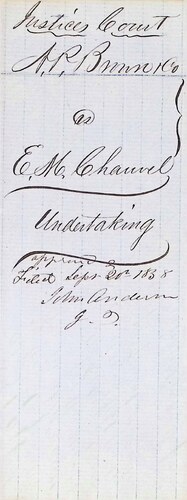 Justices Court
A. P. Brown & Co
vs
E. M. Chauvel
Undertaking
approved &
Filed Sept 20th 1858
John Anderson
J. P.